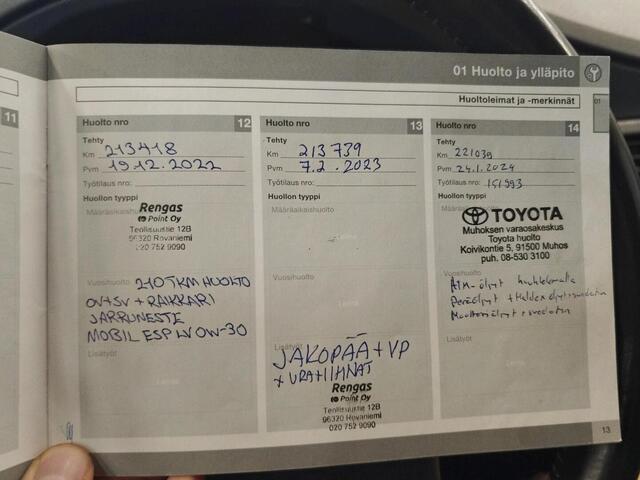 01 Huolto ja ylläpito
Huoltoleimat ja -merkinnät
01
11
Huolto nro 12
Tehty
Km 213418
Pvm 19.12.2022
Työtilaus nro:
Huollon tyyppi
Määräaikaishuolto
Rengas
Point Oy
Teollisuustie 12B
96320 Rovaniemi
020 752 9090
Vuosihuolto
210TKM HUOLTO
ÖV+SV + RAIKKARI
JARRUNESTE
MOBIL ESP LV 0W-30
Lisätyöt
Huolto nro 13
Tehty
Km 213 739
Pvm 7.2.2023
Työtilaus nro:
Huollon tyyppi
Määräaikaishuolto
Vuosihuolto
Lisätyöt
JAKOPÄÄ + VP
+ URA+IIHNAT
Rengas
Point Oy
Teollisuustie 12B
96320 Rovaniemi
020 752 9090
Huolto nro 14
Tehty
Km 221039
Pvm 24.1.2024
Työtilaus nro: 151993
Huollon tyyppi
Määräaikaishuolto
TOYOTA
Muhoksen varaosakeskus
Toyota huolto
Koivikontie 5, 91500 Muhos
puh. 08-530 3100
Vuosihuolto
ATM-öljyt
Peräöljyt + Haldex öljyt + suodatin
Moottoriöljyt + suodatin
Lisätyöt
13